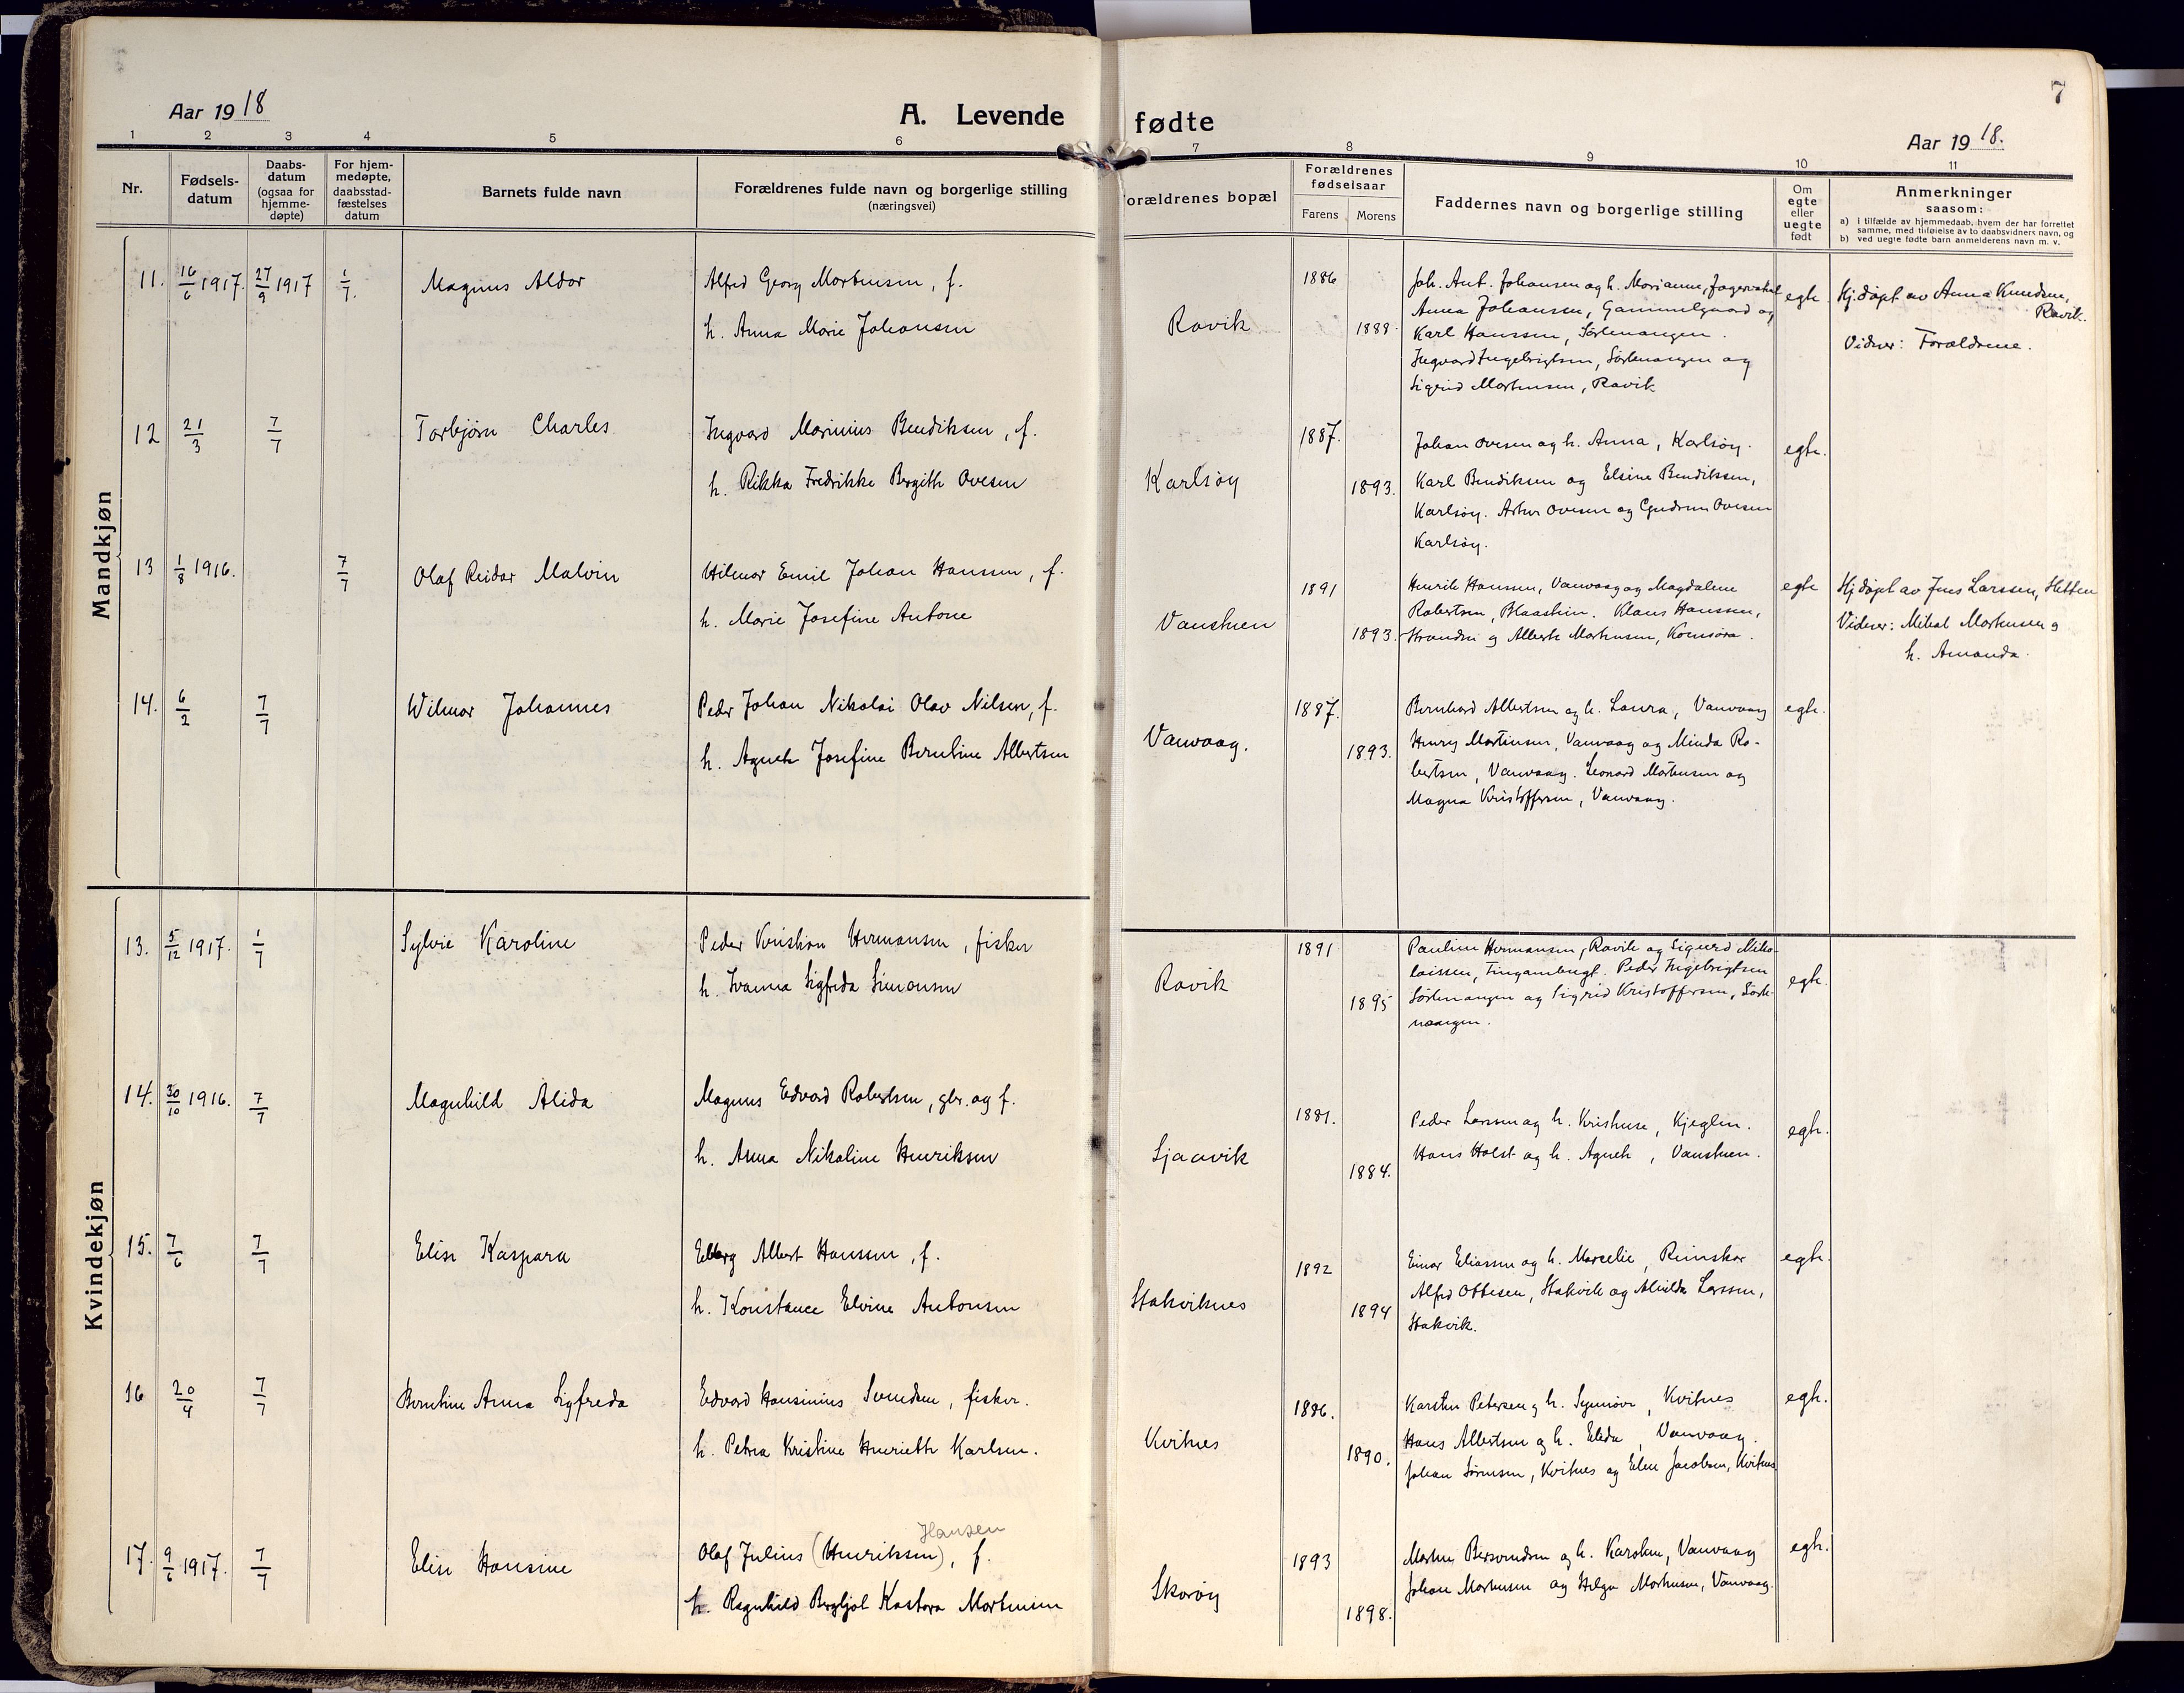 Aar 1918
A. Levende
fødte
7
Aar 1918.
1 2 3 4 5 6 7 8 9 10 11
Nr.
Fødsels-
datum
Daabs-
datum
(ogsaa for
hjemme-
døpte)
For hjem-
medøpte,
daabsstad-
fæstelses
datum
Barnets fulde navn
Forældrenes fulde navn og borgerlige stilling
(næringsvei)
orældrenes bopæl
Forældrenes
fødselsaar
Farens Morens
Faddernes navn og borgerlige stilling
Om
egte
eller
uegte
født
Anmerkninger
saasom:
a) i tilfælde av hjemmedaab, hvem der har forrettet
samme, med tilføielse av to daabsvidners navn, og
b) ved uegte fødte barn anmelderens navn m. v.
Mandkjøn
11. 16/6 1917. 27/9 1917 1/7. Magnus Aldor
Alfred Georg Mortensen, f.
h. Anna Marie Johansen
Ravik
1886
1888
Joh. Ant. Johansen og h. Marianne,
Anna Johansen, Gammelgaard og
Karl Hanssen, Sörlenangen.
Ingvard Ingebrigtsen, Sörlenangen og
Sigrid Mortensen, Ravik
egte
Hj.døpt av Anna Knudsen,
Ravik.
Vidner: Forældrene.
12 21/3 7/7 Torbjørn Charles
Ingvard Marinius Bendiksen, f.
h. Rikka Fredrikke Bergithe Ovesen
Karlsöy
1887.
1893.
Johan Ovesen og h. Anna, Karlsöy.
Karl Bendiksen og Elsine Bendiksen,
Karlsöy. Artur Ovesen og Gudrun Ovesen
Karlsöy.
egte.
13 1/8 1916. 7/7 Olaf Reidar Malvin
Hilmar Emil Johan Hanssen, f.
h. Marie Josefine Antone
Vanstuen
1891
1893.
Henrik Hanssen, Vanvaag og Magdalene
Robertsen, Blaastein. Klaus Hanssen,
Stranden og Alberte Mortensen,
egte
Hj.døpt av Jens Larssen,
Vidner: Mikal Mortensen og
h. Amanda.
14. 6/2 7/7 Wilmar Johannes
Peder Johan Nikolai Olav Nilsen, f.
h. Agnete Josefine Berntine Albertsen
Vanvaag.
1887.
1893.
Bernhard Albertsen og h. Laura, Vanvaag
Henry Martinsen, Vanvaag og Minda Ro-
bertsen, Vanvaag. Leonard Mortensen og
Magna Kristoffersen, Vanvaag.
egte.
Kvindekjøn
13. 5/12 1917. 1/7 Sylvie Karoline
Peder Kristian Hermansen, fisker
h. Ivanna Sigfrida Simonsen
Ravik
1891
1895
Pauline Hermansen, Ravik og Sigurd Niko-
laissen, Fingambugt. Peder Ingebrigtsen
Sörlenangen og Sigrid Kristoffersen, Sörle-
naangen.
egte.
14. 30/10 1916. 7/7 Magnhild Alida
Magnus Edvard Robertsen, gbr. og f.
h. Anna Nikoline Henriksen
Sjaavik
1881.
1884.
Peder Larssen og h. Kristense, Kjeglen.
Hans Holst og h. Agnete, Vanstuen.
egte.
15. 7/6 7/7 Elise Kaspara
Edberg Albert Hanssen, f.
h. Konstance Elvine Antonsen
Stakviknes
1892
1894
Einar Eliassen og h. Marcelie, Reinskar
Alfred Ottesen, Stakvik og Alvilda Larssen,
Stakvik.
egte.
16 20/4 7/7 Berntine Anna Sigfreda
Edvard Hansinius Svendsen, fisker.
h. Petra Kristine Henriette Karlsen.
Kvitnes
1886.
1890.
Karsten Petersen og h. Synnøve, Kvitnes
Hans Albertsen og h. Elida, Vanvaag.
Johan Sörensen, Kvitnes og Elen Jacobsen, Kvitnes
egte.
17. 9/6 1917. 7/7 Elise Hansine
Hansen
Olaf Julius (Henriksen), f.
h. Ragnhild Bergljot Kastora Mortensen
Skoröy
1893
1898.
Morten Bersvendsen og h. Karoline, Vanvaag
Johan Mortensen og Helga Mortensen, Vanvaag.
egte.